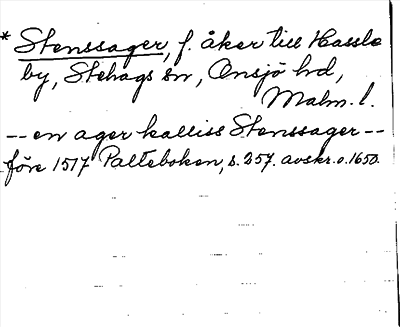 * Stenssager, f. åker till Hassle
by, Stehags sn, Onsjö hd,
Malm. l.
-- en ager kalliss Stenssager --
före 1517 Palteboken, s. 257. avskr. o. 1650.